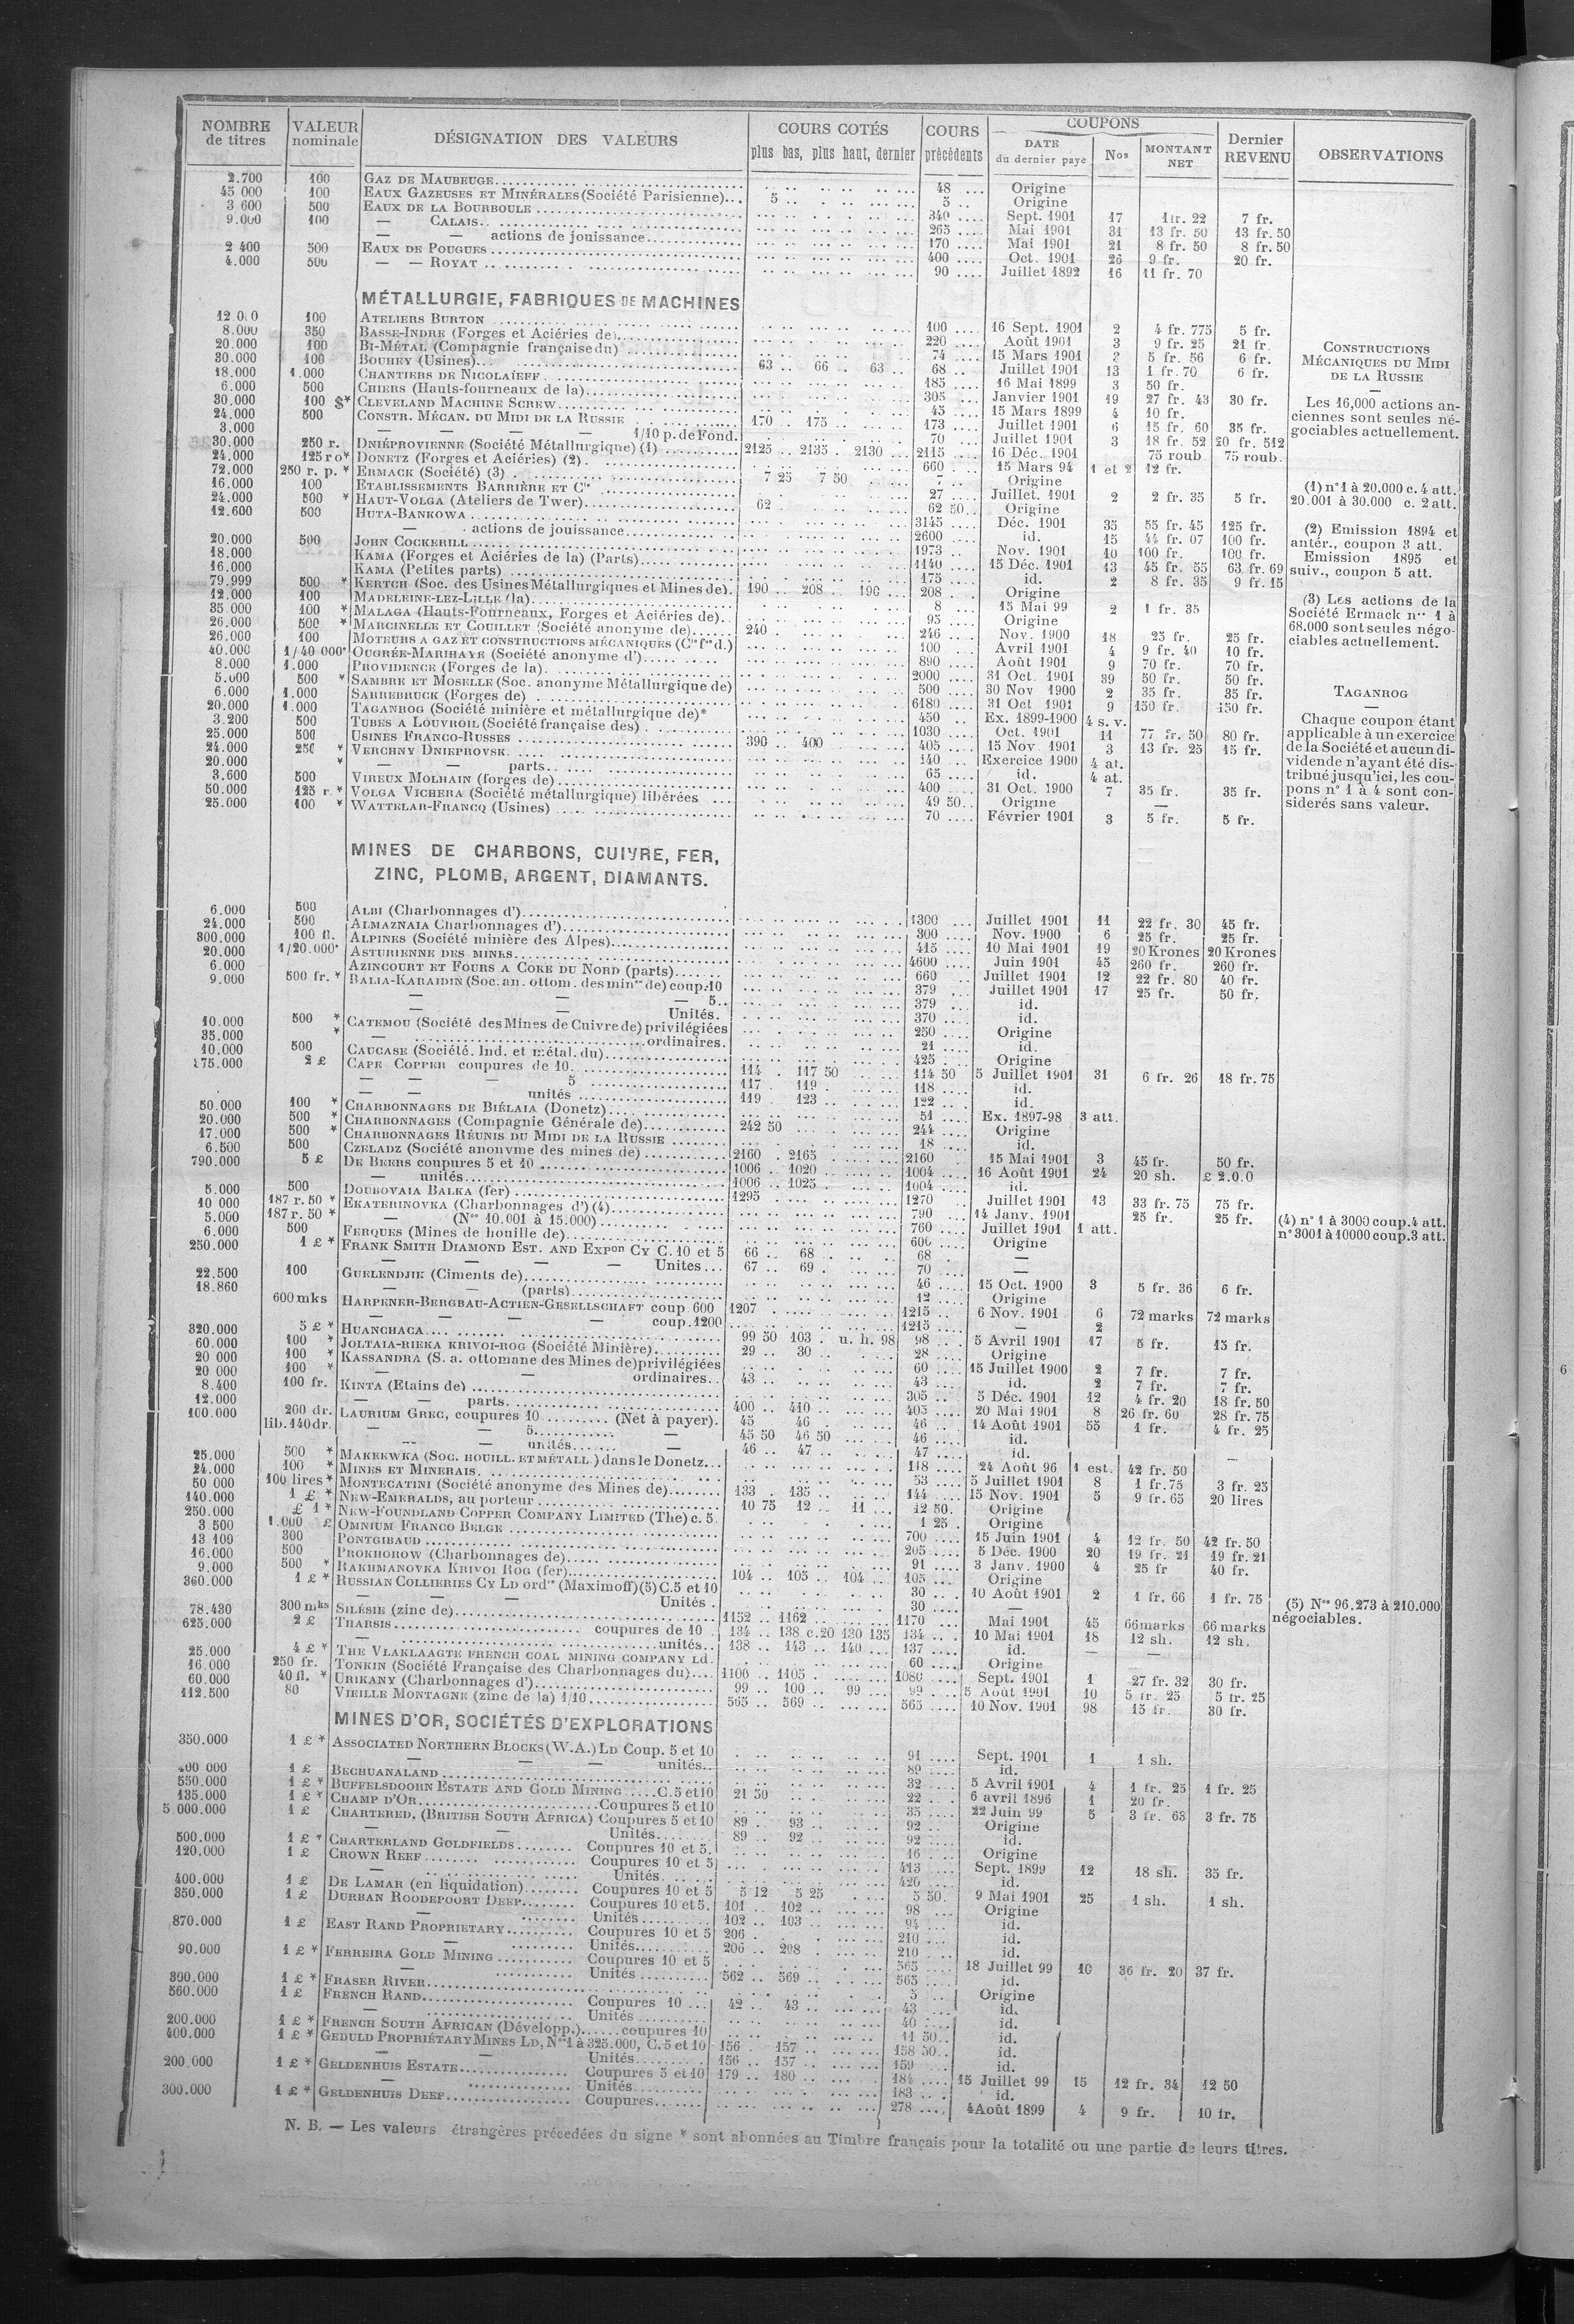 NOMBRE de titres | VALEUR nominale | DÉSIGNATION DES VALEURS | COURS COTÉS plus bas, plus haut, dernier | COURS précédents | COUPONS DATE du dernier payé | Nos | MONTANT NET | Dernier REVENU | OBSERVATIONS
2.700 | 100 | GAZ DE MAUBEUGE | 48 | Origine
45 000 | 100 | EAUX GAZEUSES ET MINÉRALES (Société Parisienne) | 5 | 5 | Origine
3 600 | 500 | EAUX DE LA BOURBOULE | 340 | Sept. 1901 | 17 | 1fr. 22 | 7 fr.
9.000 | 100 | — CALAIS | 265 | Mai 1901 | 31 | 13 fr. 50 | 13 fr. 50
— — actions de jouissance | 170 | Mai 1901 | 21 | 8 fr. 50 | 8 fr. 50
2 400 | 500 | EAUX DE POUGUES | 400 | Oct. 1901 | 26 | 9 fr. | 20 fr.
4.000 | 500 | — — ROYAT | 90 | Juillet 1892 | 16 | 11 fr. 70
MÉTALLURGIE, FABRIQUES DE MACHINES
12.000 | 100 | ATELIERS BURTON | 100 | 16 Sept. 1901 | 2 | 4 fr. 775 | 5 fr.
8.000 | 350 | BASSE-INDRE (Forges et Aciéries de) | 220 | Août 1901 | 3 | 9 fr. 25 | 21 fr.
20.000 | 100 | BI-MÉTAL (Compagnie française du) | 74 | 15 Mars 1901 | 5 fr. 56 | 6 fr.
30.000 | 100 | BOUHEY (Usines) | 63 | 66 | 63 | 68 | Juillet 1901 | 13 | 1 fr. 70 | 6 fr.
18.000 | 1.000 | CHANTIERS DE NICOLAÏEFF | 185 | 16 Mai 1899 | 3 | 50 fr.
6.000 | 500 | CHIERS (Hauts-fourneaux de la) | 305 | Janvier 1901 | 19 | 27 fr. 43 | 30 fr.
30.000 | 100 $* | CLEVELAND MACHINE SCREW | 45 | 15 Mars 1899 | 4 | 10 fr.
24.000 | 500 | CONSTR. MÉCAN. DU MIDI DE LA RUSSIE | 170 | 175 | 173 | Juillet 1901 | 6 | 15 fr. 60 | 35 fr.
3.000 | — — — — 1/10 p. de Fond. | 70 | Juillet 1901 | 3 | 18 fr. 52 | 20 fr. 512
30.000 | 250 r. | DNIÉPROVIENNE (Société Métallurgique) (1) | 2125 | 2135 | 2130 | 2115 | 16 Déc. 1901 | 75 roub | 75 roub.
24.000 | 125 ro* | DONETZ (Forges et Aciéries) (2) | 660 | 15 Mars 94 | 1 et 2 | 12 fr.
72.000 | 250 r. p. * | ERMACK (Société) (3) | 7 25 | 7 50 | 7 | Origine
16.000 | 100 | ETABLISSEMENTS BARRIÈRE ET Cie | 27 | Juillet. 1901 | 2 | 2 fr. 35 | 5 fr.
24.000 | 500 * | HAUT-VOLGA (Ateliers de Twer) | 62 | 62 50 | Origine
12.600 | 500 | HUTA-BANKOWA | 3145 | Déc. 1901 | 35 | 55 fr. 45 | 125 fr.
— actions de jouissance | 2600 | id. | 15 | 44 fr. 07 | 100 fr.
20.000 | 500 | JOHN COCKERILL | 1973 | Nov. 1901 | 10 | 100 fr. | 100 fr.
18.000 | KAMA (Forges et Aciéries de la) (Parts) | 1140 | 15 Déc. 1901 | 13 | 45 fr. 55 | 63 fr. 69
16.000 | KAMA (Petites parts) | 175 | id. | 2 | 8 fr. 35 | 9 fr. 15
79.999 | 500 * | KERTCH (Soc. des Usines Métallurgiques et Mines de) | 190 | 208 | 190 | 208 | Origine
12.000 | 100 | MADELEINE-LEZ-LILLE (la) | 8 | 15 Mai 99 | 2 | 1 fr. 35
35.000 | 100 * | MALAGA (Hauts-Fourneaux, Forges et Aciéries de) | 95 | Origine
26.000 | 500 * | MARCINELLE ET COUILLET (Société anonyme de) | 240 | 246 | Nov. 1900 | 18 | 25 fr. | 25 fr.
26.000 | 100 | MOTEURS A GAZ ET CONSTRUCTIONS MÉCANIQUES (Cie fse d.) | 100 | Avril 1901 | 4 | 9 fr. 40 | 10 fr.
40.000 | 1/40 000* | OUGRÉE-MARIHAYE (Société anonyme d') | 890 | Août 1901 | 9 | 70 fr. | 70 fr.
8.000 | 1.000 | PROVIDENCE (Forges de la) | 2000 | 31 Oct. 1901 | 39 | 50 fr. | 50 fr.
5.000 | 500 * | SAMBRE ET MOSELLE (Soc. anonyme Métallurgique de) | 500 | 30 Nov 1900 | 2 | 35 fr. | 35 fr.
6.000 | 1.000 | SARREBRUCK (Forges de) | 6180 | 31 Oct 1901 | 9 | 150 fr. | 150 fr.
20.000 | 1.000 | TAGANROG (Société minière et métallurgique de)* | 450 | Ex. 1899-1900 | 4 s. v.
3.200 | 500 | TUBES A LOUVROIL (Société française des) | 1030 | Oct. 1901 | 11 | 77 fr. 50 | 80 fr.
25.000 | 500 | USINES FRANCO-RUSSES | 390 | 400 | 405 | 15 Nov. 1901 | 3 | 13 fr. 25 | 15 fr.
24.000 | 250 * | VERCHNY DNIEPROVSK | 140 | Exercice 1900 | 4 at.
20.000 | * | — — parts | 65 | id. | 4 at.
3.600 | 500 | VIREUX MOLHAIN (forges de) | 400 | 31 Oct. 1900 | 7 | 35 fr. | 35 fr.
50.000 | 125 r. * | VOLGA VICHERA (Société métallurgique) libérées | 49 50 | Origine | —
25.000 | 100 * | WATTELAR-FRANCQ (Usines) | 70 | Février 1901 | 3 | 5 fr. | 5 fr.
CONSTRUCTIONS
MÉCANIQUES DU MIDI
DE LA RUSSIE
—
Les 16,000 actions an-
ciennes sont seules né-
gociables actuellement.
(1) n° 1 à 20.000 c. 4 att.
20.001 à 30.000 c. 2 att.
(2) Emission 1894 et
antér., coupon 3 att.
Emission 1895 et
suiv., coupon 5 att.
(3) Les actions de la
Société Ermack nos 1 à
68.000 sont seules négo-
ciables actuellement.
TAGANROG
—
Chaque coupon étant
applicable à un exercice
de la Société et aucun di-
vidende n'ayant été dis-
tribué jusqu'ici, les cou-
pons n° 1 à 4 sont con-
siderés sans valeur.
MINES DE CHARBONS, CUIVRE, FER,
ZINC, PLOMB, ARGENT, DIAMANTS.
6.000 | 500 | ALBI (Charbonnages d') | 1300 | Juillet 1901 | 11 | 22 fr. 30 | 45 fr.
24.000 | 500 | ALMAZNAIA Charbonnages d') | 300 | Nov. 1900 | 6 | 25 fr. | 25 fr.
300.000 | 100 fl. | ALPINES (Société minière des Alpes) | 415 | 10 Mai 1901 | 19 | 20 Krones | 20 Krones
20.000 | 1/20.000* | ASTURIENNE DES MINES | 4600 | Juin 1901 | 45 | 260 fr. | 260 fr.
6.000 | AZINCOURT ET FOURS A COKE DU NORD (parts) | 660 | Juillet 1901 | 12 | 22 fr. 80 | 40 fr.
9.000 | 500 fr. * | BALIA-KARAIDIN (Soc. an. ottom. des mines de) coup. 10 | 379 | Juillet 1901 | 17 | 25 fr. | 50 fr.
— — — 5 | 379 | id.
— — Unités. | 370 | id.
10.000 | 500 * | CATEMOU (Société des Mines de Cuivre de) privilégiées | 250 | Origine
35.000 | * | — ordinaires. | 21 | id.
10.000 | 500 | CAUCASE (Société. Ind. et métal. du) | 425 | Origine
175.000 | 2 £ | CAPE COPPER coupures de 10 | 114 | 117 50 | 114 50 | 5 Juillet 1901 | 31 | 6 fr. 26 | 18 fr. 75
— — — 5 | 117 | 119 | 118 | id.
— — unités | 119 | 123 | 122 | id.
50.000 | 100 * | CHARBONNAGES DE BIÉLAIA (Donetz) | 51 | Ex. 1897-98 | 3 att.
20.000 | 500 * | CHARBONNAGES (Compagnie Générale de) | 242 50 | 244 | Origine
17.000 | 500 * | CHARBONNAGES RÉUNIS DU MIDI DE LA RUSSIE | 18 | id.
6.500 | 500 | CZELADZ (Société anonyme des mines de) | 2160 | 2165 | 2160 | 15 Mai 1901 | 3 | 45 fr. | 50 fr.
790.000 | 5 £ | DE BEERS coupures 5 et 10 | 1006 | 1020 | 1004 | 16 Août 1901 | 24 | 20 sh. | £ 2.0.0
— unités | 1006 | 1025 | 1004 | id.
5.000 | 500 | DOUBOVAIA BALKA (fer) | 1295 | 1270 | Juillet 1901 | 13 | 33 fr. 75 | 75 fr.
10 000 | 187 r. 50 * | EKATERINOVKA (Charbonnages d') (4) | 790 | 14 Janv. 1901 | 25 fr. | 25 fr.
5.000 | 187 r. 50 * | — (Nos 10.001 à 15.000) | 760 | Juillet 1901 | 1 att.
6.000 | 500 | FERQUES (Mines de houille de) | 600 | Origine
250.000 | 1 £ * | FRANK SMITH DIAMOND EST. AND EXPon CY C. 10 et 5 | 66 | 68 | 68 | —
— — — — Unites | 67 | 69 | 70 | —
22.500 | 100 | GUELENDJIK (Ciments de) | 46 | 15 Oct. 1900 | 3 | 5 fr. 36 | 6 fr.
18.860 | — — (parts) | 12 | Origine
600 mks | HARPENER-BERGBAU-ACTIEN-GESELLSCHAFT coup 600 | 1207 | 1215 | 6 Nov. 1901 | 6 | 72 marks | 72 marks
— — — — coup. 1200 | 1215 | — | 2
320.000 | 5 £ * | HUANCHACA | 99 50 | 103 | u. h. 98 | 98 | 5 Avril 1901 | 17 | 5 fr. | 15 fr.
60.000 | 100 * | JOLTAIA-RIEKA KRIVOI-ROG (Société Minière) | 29 | 30 | 28 | Origine
20 000 | 100 * | KASSANDRA (S. a. ottomane des Mines de) privilégiées | 60 | 15 Juillet 1900 | 2 | 7 fr. | 7 fr.
20 000 | 100 * | — — ordinaires | 43 | 43 | id. | 2 | 7 fr. | 7 fr.
8.400 | 100 fr. | KINTA (Etains de) | 305 | 5 Déc. 1901 | 12 | 4 fr. 20 | 18 fr. 50
12.000 | — — parts | 400 | 410 | 405 | 20 Mai 1901 | 8 | 26 fr. 60 | 28 fr. 75
100.000 | 200 dr. | LAURIUM GREC, coupures 10 (Net à payer) | 45 | 46 | 46 | 14 Août 1901 | 55 | 1 fr. | 4 fr. 25
lib. 140 dr. | — — 5 — | 45 50 | 46 50 | 46 | id.
— — unités — | 46 | 47 | 47 | id.
25.000 | 500 * | MAKEEWKA (SOC. HOUILL. ET MÉTALL) dans le Donetz | 118 | 24 Août 96 | 1 est. | 42 fr. 50 | —
24.000 | 100 * | MINES ET MINERAIS | 53 | 5 Juillet 1901 | 8 | 1 fr. 75 | 3 fr. 25
50 000 | 100 lires * | MONTECATINI (Société anonyme des Mines de) | 133 | 135 | 144 | 15 Nov. 1901 | 5 | 9 fr. 65 | 20 lires
140.000 | 1 £ * | NEW-EMERALDS, au porteur | 10 75 | 12 | 11 | 12 50 | Origine
250.000 | £ 1 * | NEW-FOUNDLAND COPPER COMPANY LIMITED (The) c. 5 | 1 25 | Origine
3 500 | 1.000 £ | OMNIUM FRANCO BELGE | 700 | 15 Juin 1901 | 4 | 12 fr. 50 | 42 fr. 50
13 100 | 300 | PONTGIBAUD | 205 | 5 Déc. 1900 | 20 | 19 fr. 21 | 19 fr. 21
16.000 | 500 | PROKHOROW (Charbonnages de) | 91 | 3 Janv. 1900 | 4 | 25 fr | 40 fr.
9.000 | 500 * | RAKHMANOVKA KRIVOI ROG (fer) | 104 | 105 | 104 | 105 | Origine
360.000 | 1 £ * | RUSSIAN COLLIERIES CY LD ordres (Maximoff) (5) C. 5 et 10 | 30 | 10 Août 1901 | 2 | 1 fr. 66 | 1 fr. 75
Unités | 30 | —
78.430 | 300 mks | SILÉSIE (zinc de) | 1152 | 1162 | 1170 | Mai 1901 | 45 | 66 marks | 66 marks
625.000 | 2 £ | THARSIS coupures de 10 | 134 | 138 c. 20 130 135 | 134 | 10 Mai 1901 | 18 | 12 sh. | 12 sh.
— unités | 138 | 143 | 140 | 137 | id. | — | —
25.000 | 4 £ * | THE VLAKLAAGTE FRENCH COAL MINING COMPANY Ld. | 60 | Origine
16.000 | 250 fr. | TONKIN (Société Française des Charbonnages du) | 1106 | 1105 | 1080 | Sept. 1901 | 1 | 27 fr. 32 | 30 fr.
60.000 | 40 fl. * | URIKANY (Charbonnages d') | 99 | 100 | 99 | 99 | 5 Août 1901 | 10 | 5 fr. 25 | 5 fr. 25
112.500 | 80 | VIEILLE MONTAGNE (zinc de la) 1/10 | 565 | 569 | 565 | 10 Nov. 1901 | 98 | 15 fr. | 30 fr.
(4) n° 1 à 3000 coup. 4 att.
n° 3001 à 10000 coup. 3 att.
(5) Nos 96.273 à 210.000
négociables.
MINES D'OR, SOCIÉTÉS D'EXPLORATIONS
350.000 | 1 £ * | ASSOCIATED NORTHERN BLOCKS (W.A.) LD Coup. 5 et 10 | 91 | Sept. 1901 | 1 | 1 sh.
— — — unités | 89 | id.
400 000 | 1 £ | BECHUANALAND | 32 | 5 Avril 1901 | 4 | 1 fr. 25 | 1 fr. 25
550.000 | 1 £ * | BUFFELSDOORN ESTATE AND GOLD MINING C. 5 et 10 | 21 50 | 22 | 6 avril 1896 | 1 | 20 fr.
135.000 | 1 £ * | CHAMP D'OR Coupures 5 et 10 | 35 | 22 Juin 99 | 5 | 3 fr. 63 | 3 fr. 75
5 000.000 | 1 £ | CHARTERED, (BRITISH SOUTH AFRICA) Coupures 5 et 10 | 89 | 93 | 92 | Origine
— — Unités | 89 | 92 | 92 | id.
500.000 | 1 £ * | CHARTERLAND GOLDFIELDS Coupures 10 et 5 | 16 | Origine
120.000 | 1 £ | CROWN REEF Coupures 10 et 5 | 413 | Sept. 1899 | 12 | 18 sh. | 35 fr.
— Unités | 420 | id.
400.000 | 1 £ | DE LAMAR (en liquidation) Coupures 10 et 5 | 5 12 | 5 25 | 5 50 | 9 Mai 1901 | 25 | 1 sh. | 1 sh.
350.000 | 1 £ | DURBAN ROODEPOORT DEEP Coupures 10 et 5 | 101 | 102 | 98 | Origine
— Unités | 102 | 103 | 94 | id.
870.000 | 1 £ | EAST RAND PROPRIETARY Coupures 10 et 5 | 206 | 210 | id.
— Unités | 206 | 208 | 210 | id.
90.000 | 1 £ * | FERREIRA GOLD MINING Coupures 10 et 5 | 565 | 18 Juillet 99 | 10 | 36 fr. 20 | 37 fr.
— Unités | 562 | 569 | 565 | id.
300.000 | 1 £ * | FRASER RIVER | 5 | Origine
560.000 | 1 £ | FRENCH RAND Coupures 10 | 42 | 43 | 43 | id.
— Unités | 40 | id.
200.000 | 1 £ * | FRENCH SOUTH AFRICAN (Développ.) coupures 10 | 11 50 | id.
400.000 | 1 £ * | GEDULD PROPRIÉTARY MINES LD, Nos 1 à 325.000, C. 5 et 10 | 156 | 157 | 158 50 | id.
— Unités | 156 | 157 | 159 | id.
200.000 | 1 £ * | GELDENHUIS ESTATE Coupures 5 et 10 | 179 | 180 | 184 | 15 Juillet 99 | 15 | 12 fr. 34 | 12 50
— Unités | 183 | id.
300.000 | 1 £ * | GELDENHUIS DEEP Coupures | 278 | 4 Août 1899 | 4 | 9 fr. | 10 fr.
N. B. — Les valeurs étrangères précedées du signe * sont abonnées au Timbre français pour la totalité ou une partie de leurs titres.
6